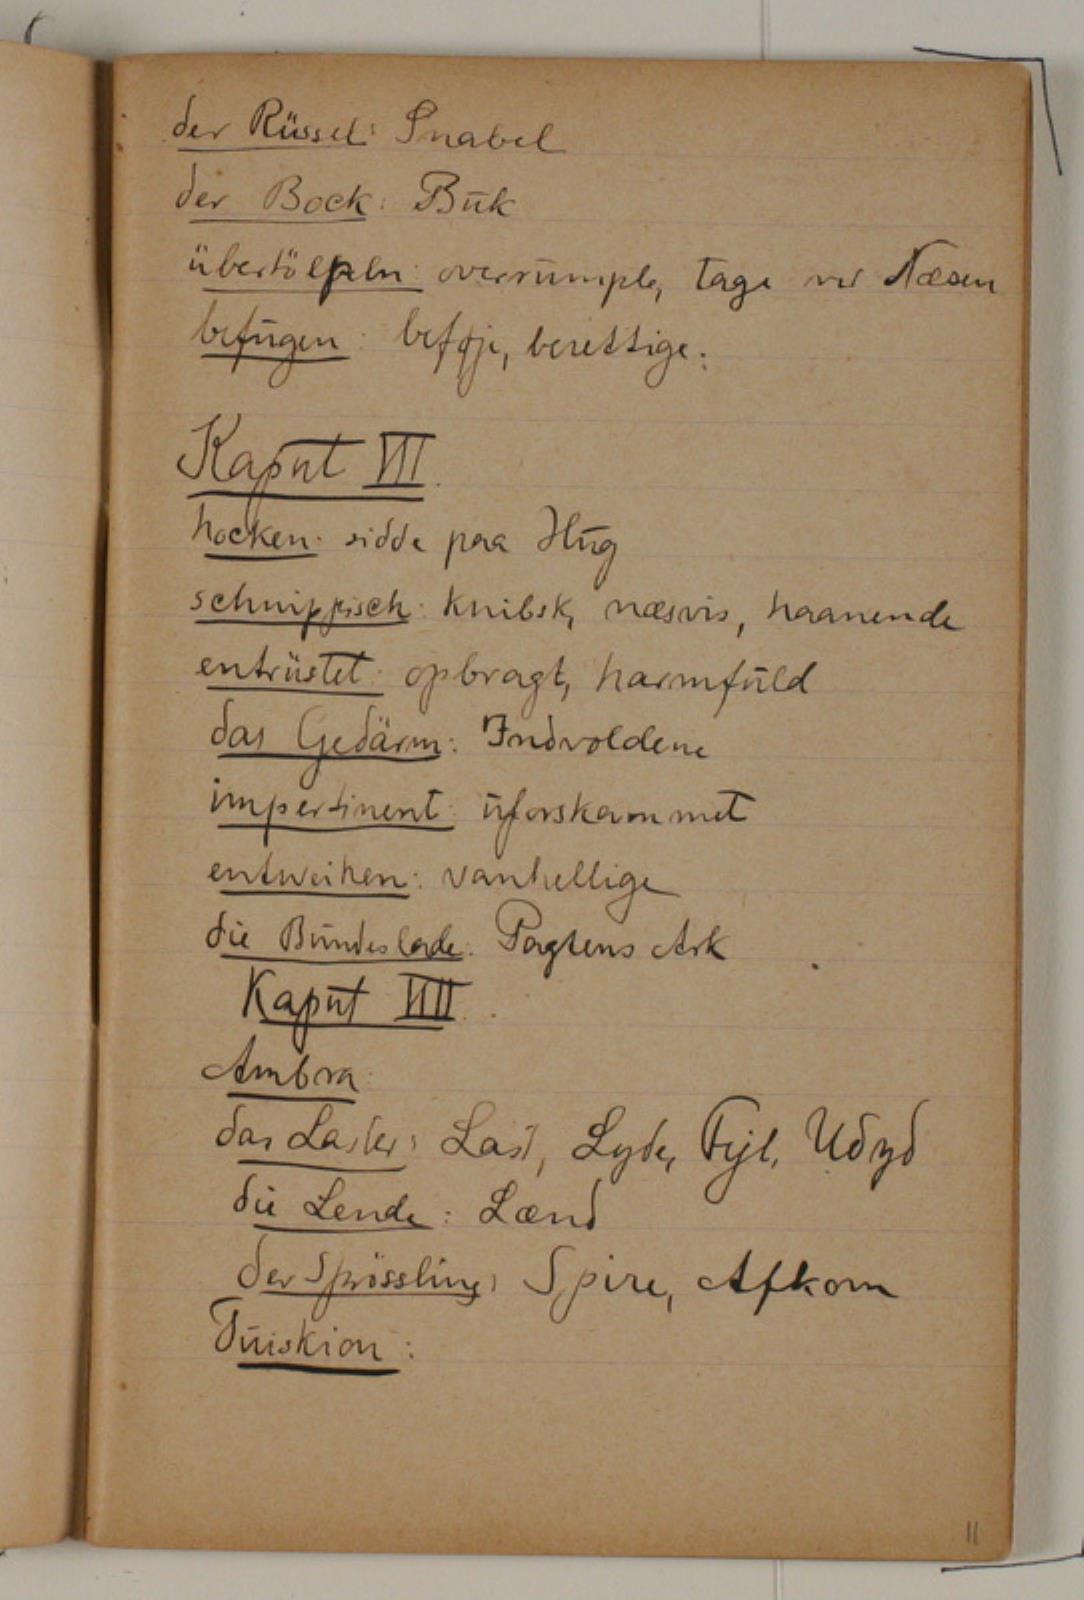 der Rüssel: Snabel
der Bock: Buk
übertölpeln: overrumple, tage ved Næsen
befugen: beføje, berettige.
Kaput VII
hocken: sidde paa Hug
schnippisch: knibsk, næsvis, haanende
entrüstet: opbragt, harmfuld
das Gedärm: Indvoldene
impertinent: uforskammet
entweihen: vanhellige
die Bundeslade: Pagtens Ark
Kaput VIII
Ambra:
das Laster: Last, Lyde, Fejl, Udyd
die Lende: Lænd
der Sprössling: Spire, Afkom
Tuiskion:
11